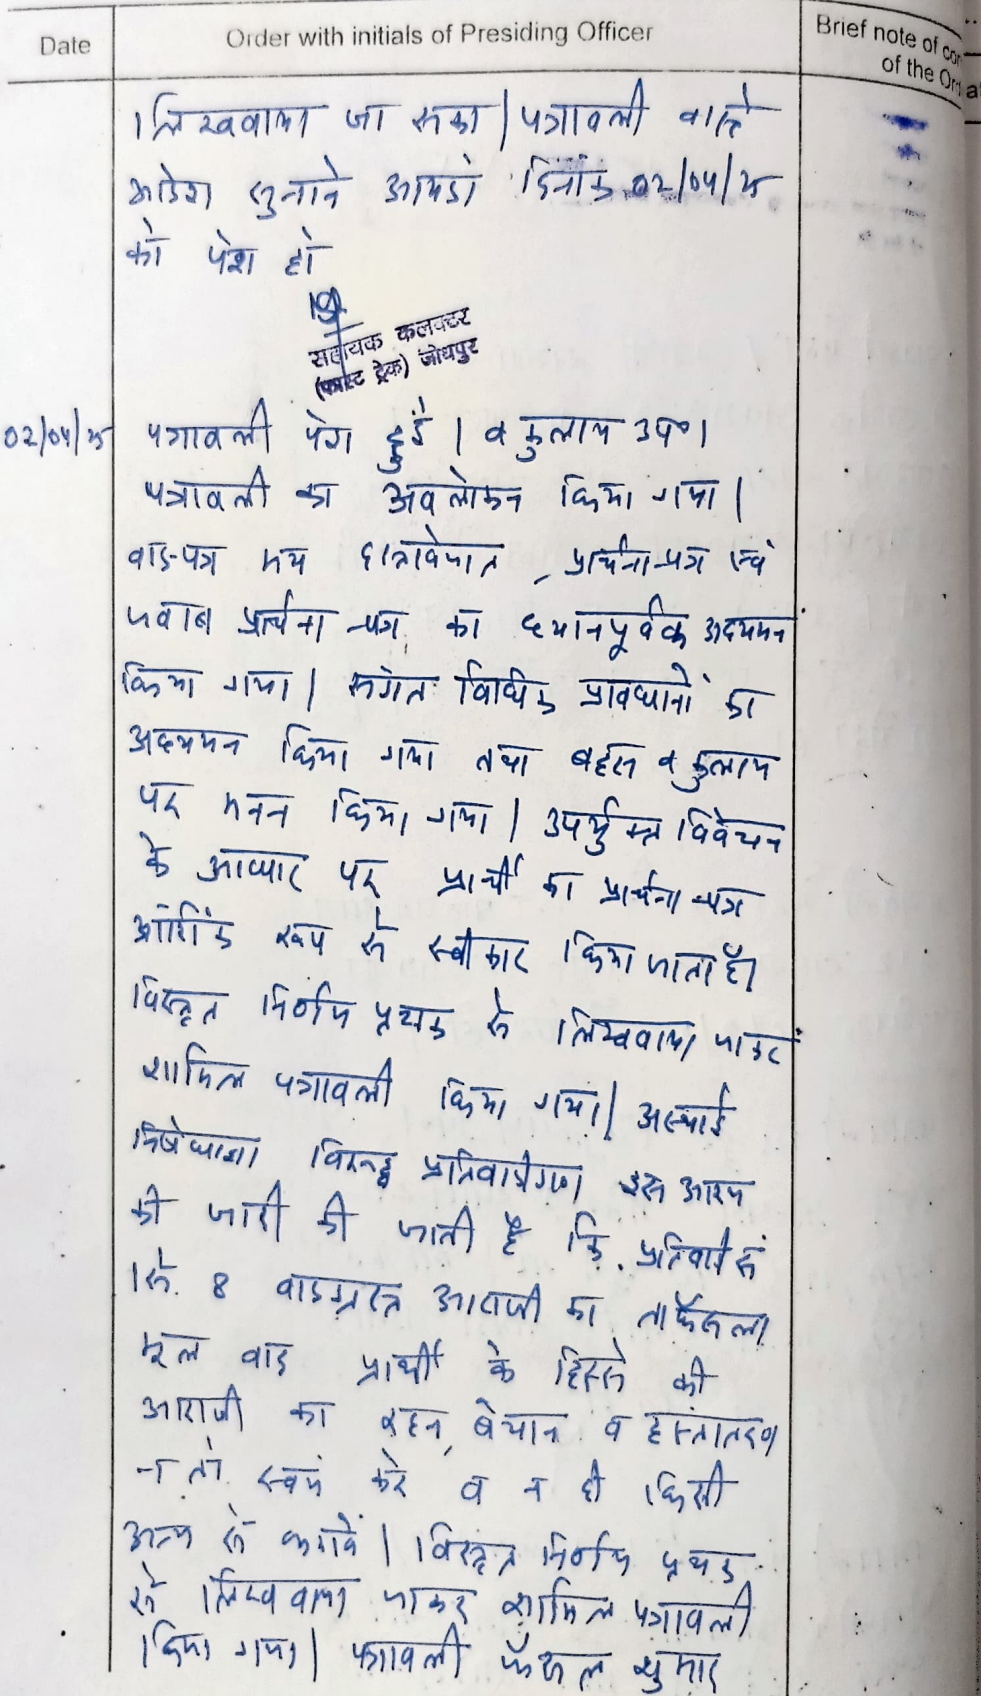 Date
Order with initials of Presiding Officer
Brief note of
of the
लिखवाया जा सका। पत्रावली वास्ते
आदेश सुनाने आयन्दा दिनांक 02/04/25
को पेश हो
सहायक कलक्टर
(फास्ट ट्रेक) जोधपुर
02/04/25 पत्रावली पेश हुई। वकुलाय उप०।
पत्रावली का अवलोकन किया गया।
वाद-पत्र मय दस्तावेजात, प्रार्थना-पत्र एवं
जवाब प्रार्थना-पत्र का ध्यानपूर्वक अध्ययन
किया गया। संगत विधिक प्रावधानों का
अध्ययन किया गया तथा बहस वकुलाय
पर मनन किया गया। उपर्युक्त विवेचन
के आधार पर प्रार्थी का प्रार्थना-पत्र
आंशिक रूप से स्वीकार किया जाता है।
विस्तृत निर्णय पृथक से लिखवाया जाकर
शामिल पत्रावली किया गया। अस्थाई
निषेधाज्ञा विरुद्ध प्रतिवादीगण इस आशय
की जारी की जाती है कि प्रतिवादी सं
1 से 8 वादग्रस्त आराजी का ताफैसला
मूल वाद प्रार्थी के हिस्से की
आराजी का रहन, बेचान व हस्तांतरण
न तो स्वयं करे व न ही किसी
अन्य से करावें। विस्तृत निर्णय पृथक
से लिखवाया जाकर शामिल पत्रावली
किया गया। पत्रावली फैसल शुमार